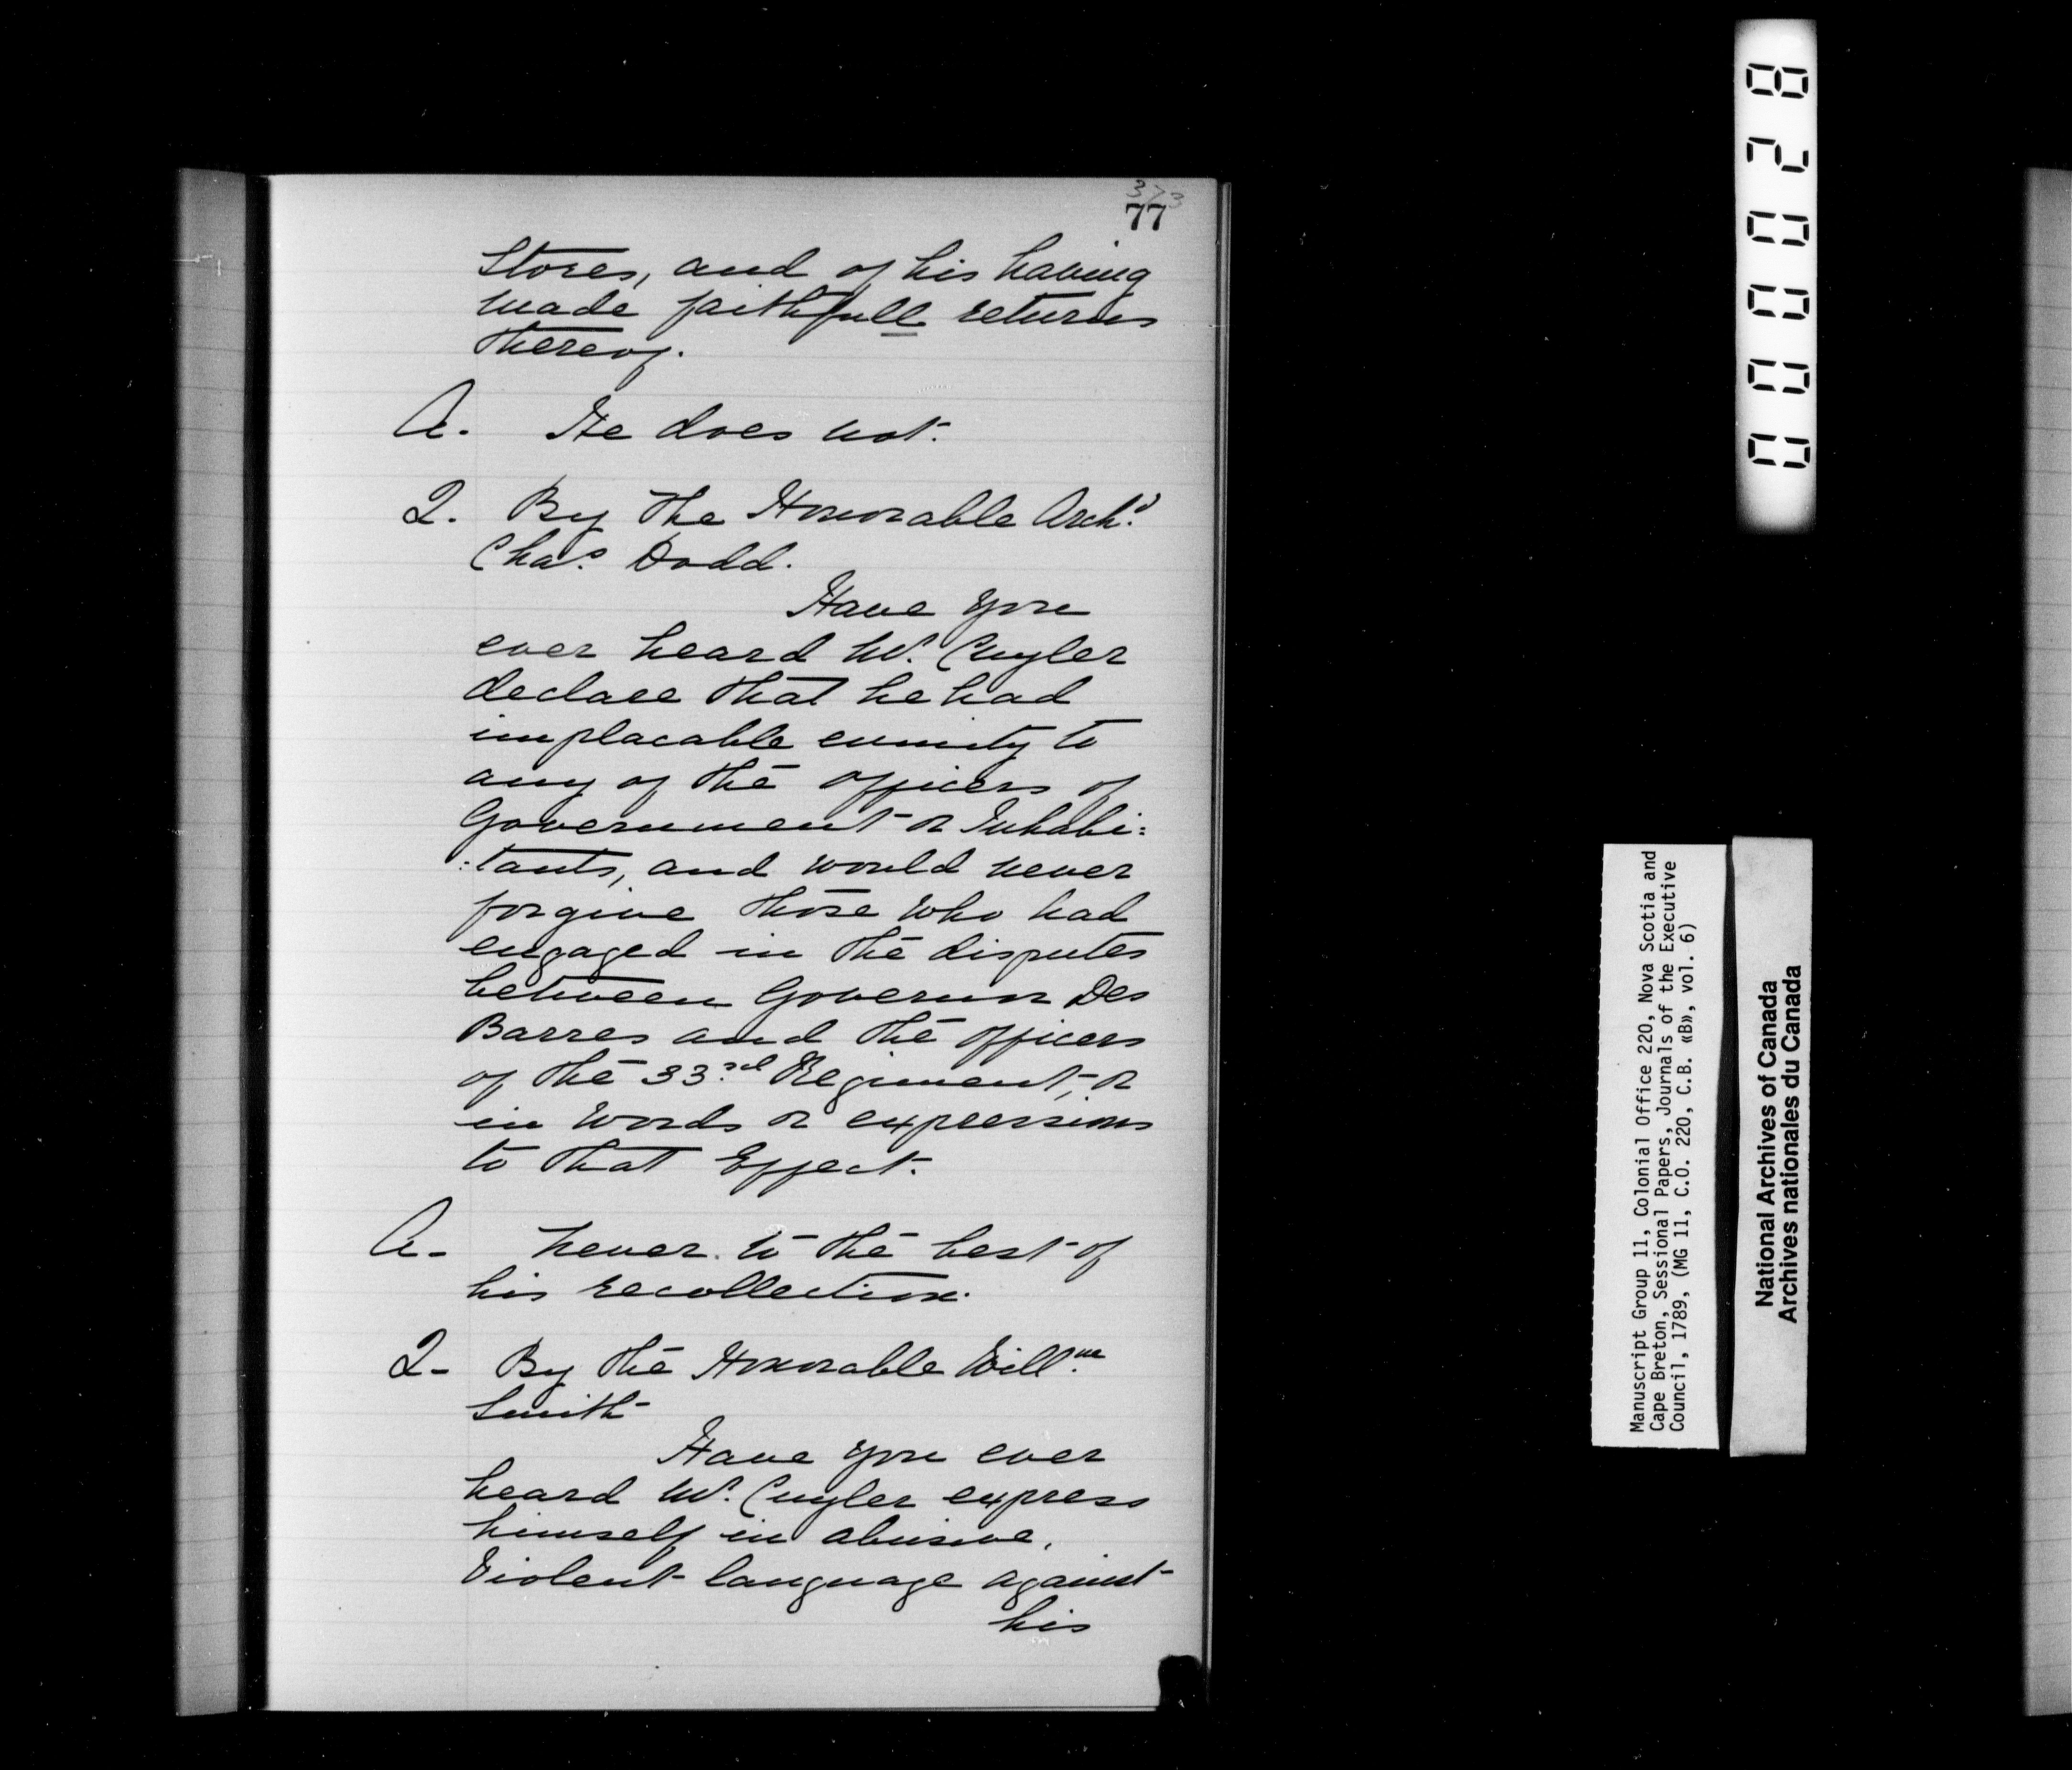 373
77
Stores, and of his having
made faithfull returns
thereof.
A. He does not.
Q. By the Honorable Archd.
Chas. Dodd.
Have you
ever heard Mr. Cuyler
declare that he had
implacable enmity to
any of the officers of
Government or Inhabi=
:tants, and would never
forgive those who had
engaged in the disputes
between Governor Des
Barres and the officers
of the 33rd Regiment, or
in words or expressions
to that Effect.
A- never to the best of
his recollection.
Q- By the Honorable Willm.
Smith
Have you ever
heard Mr. Cuyler express
himself in abusive,
Violent language against
his
000028
Manuscript Group 11, Colonial Office 220, Nova Scotia and
Cape Breton, Sessional Papers, Journals of the Executive
Council, 1789, (MG 11, C.O. 220, C.B. «B», vol. 6)
National Archives of Canada
Archives nationales du Canada